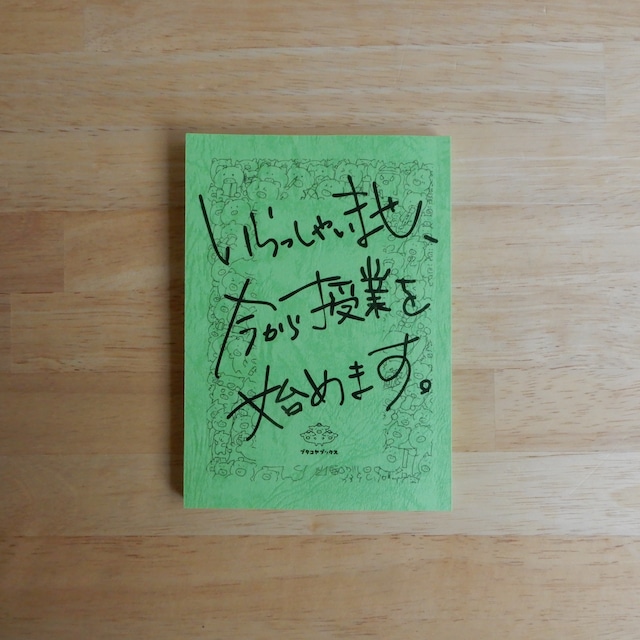 いらっしゃいませ、
今から授業を
始めます。
ブタコヤブックス